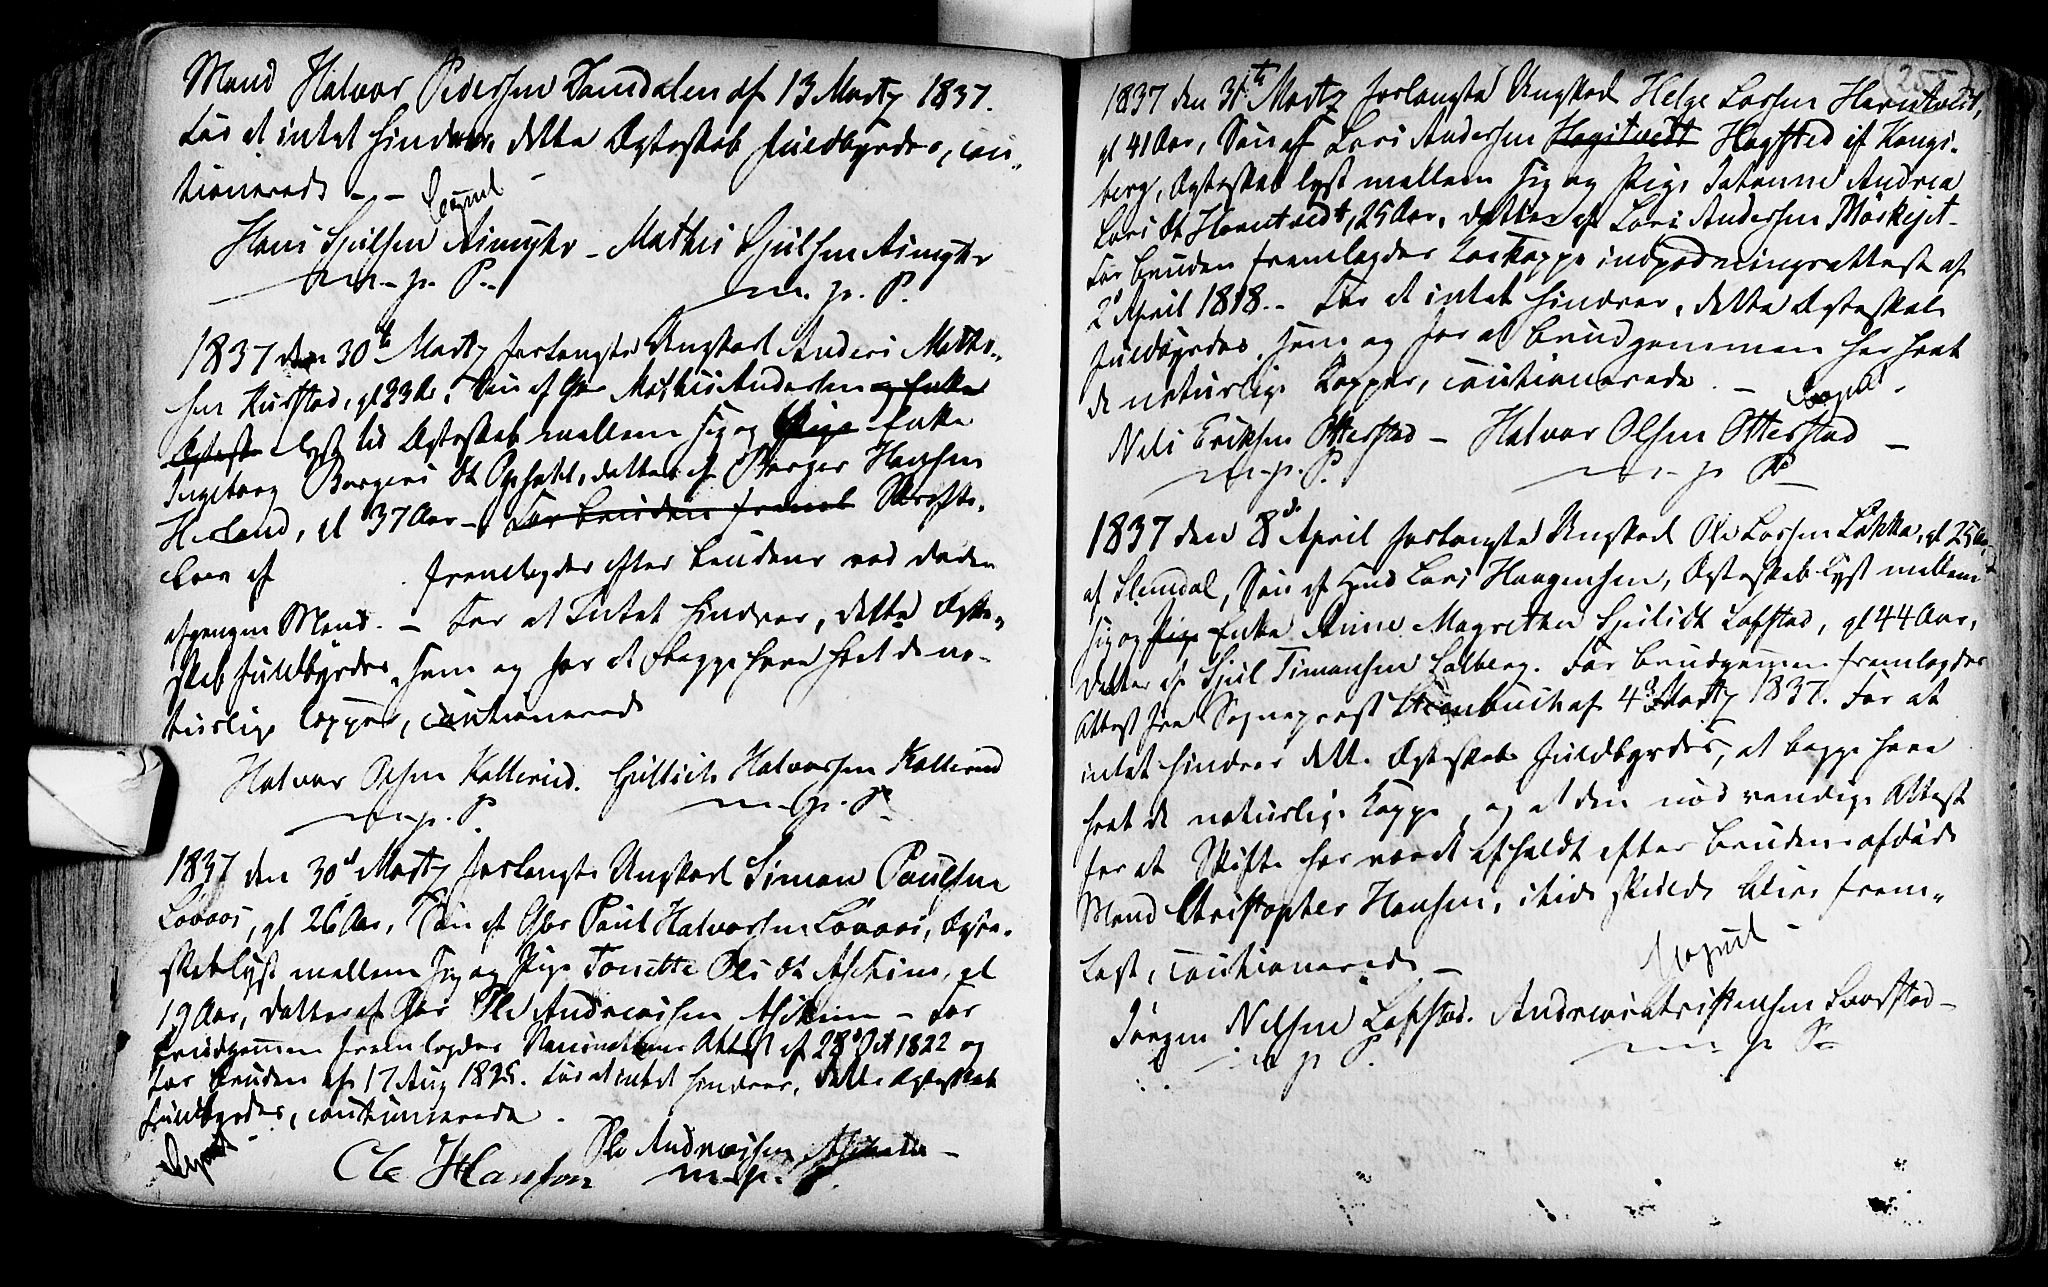 Mand Halvor Pedersen Damdalen af 13 Martz 1837.
For at intet hindrer, dette Ægteskab fuldbyrdes, cau„
tionerede - -
Hans Gulsen Aimyhr - Mathis Gulsen Aimyhr
m. p. P. m. p. P.
1837 den 30te Martz forlangte Ungkarl Anders Mathi-
sen Kurstad, gl 23 Ar, Søn af Gbr Mathis Andersen og Enke
Ægtesk lyst til Ægteskab mellem sig og Pige Enke
Ingeborg Borgers Dt Opsahl, datter af Borger Hansen
Herland, gl 37 Aar - For bruden freml Skifte-
brev af . fremlagdes efter brudens ved døden
afgangne Mand. - For at Intet hindrer, dette Ægte„
skab fuldbyrdes, som og for at begge have havt de na-
turlige Copper, cautionerede
Halvor Olsen Kallerud. Gullich Halvorsen Kallerud
m. p. P. m. p. P.
1837 den 30d Martz forlangte Ungkarl Simon Paulsen
Løvaas, gl 26 Aar, Søn af Gbr Paul Halvorsen Løvaas, Ægte-
skab lyst mellem sig og Pige Tonette Ols Dt Askim, gl
19 Aar, datter af Gbr Ole Andreassen Askim - For
brudgommen fremlagdes Vaccinations Attest af 28d Oct 1822 og
for bruden af 17 Aug 1825. For at intet hindrer, dette Ægteskab
fuldbyrdes, cautionerede .
Ole Hansson Ole Andreassen Askim -
m. p. P.
255
1837 den 31te Martz forlangte Ungkarl Helge Larsen Haventvedt,
gl 41 Aar, Søn af Lars Andersen Hagitvedt Hagsted af Kongs-
berg, Ægteskab lyst mellem sig og Pige Johanne Andrea
Lars Dt Haventvedt, 25 Aar, datter af Lars Andersen
For bruden fremlagdes Koekoppe indpodningsattest af
2d April 1818. - For at intet hindrer, dette Ægteskab
fuldbyrdes, som og for at brudgommen har havt
de naturlige Kopper, cautionerede . -
Niels Eriksen Otterstad - Halvor Olsen Otterstad -
m. p. P. m. p. P.
1837 den 8d April forlangte Ungkarl Ole Larsen Løkka, gl 25 Aar,
af Slemdal, Søn af Hmd Lars Haagensen, Ægteskab lyst mellem
sig og Pige Enke Anne Magrethe Gulsdt Lofstad, gl 44 Aar,
datter af Gjul Simonsen Solberg. For brudgommen fremlagdes
Attest fra Sogneprest Steenbuch af 4d Martz 1837. For at
intet hindrer dette Ægteskabs fuldbyrdes, at begge have
havt de naturlige Koppe, og at den nødvendige Attest
for at Skifte har været afholdt efter brudens afdøde
Mand Christopher Hansen, i tide skulde blive frem„
lagt, cautionerede -
Jørgen Nilsen Lofstad. Andreas Christensen Laafstad -
m p P. m p P.